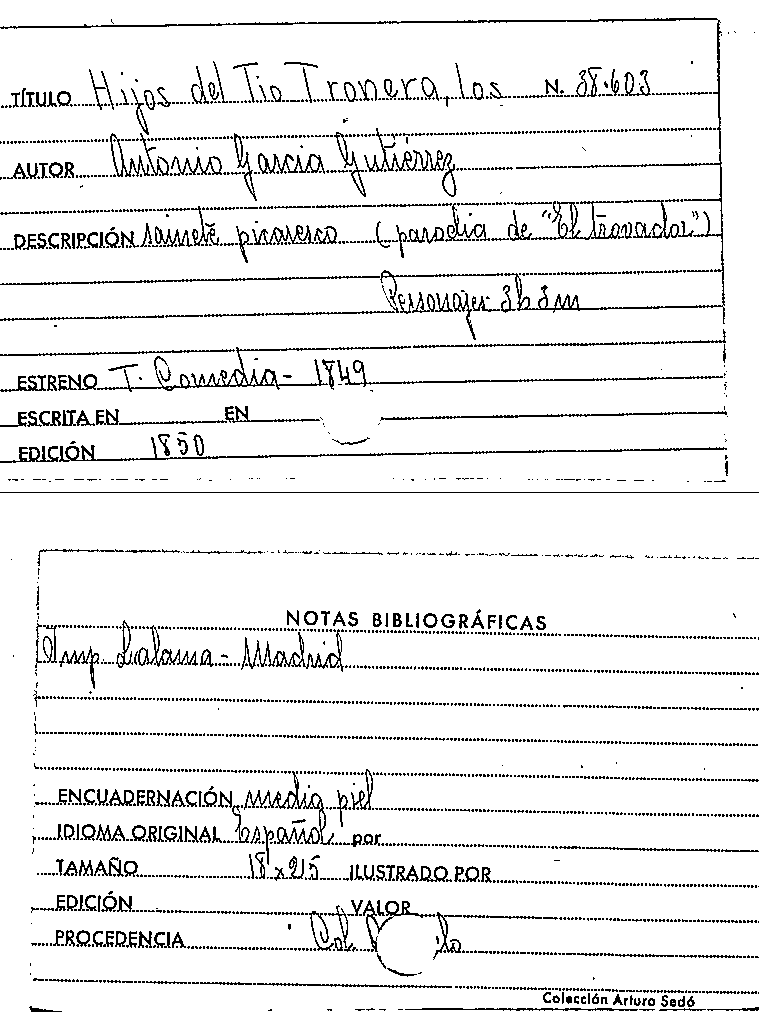 TÍTULO Hijos del Tio Tronera, los N. 38.603
AUTOR Antonio Garcia Gutiérrez
DESCRIPCIÓN sainete picaresco (parodia de "El trovador")
Personajes 3h 3m
ESTRENO T. Comedia - 1849
ESCRITA EN EN
EDICIÓN 1850
NOTAS BIBLIOGRÁFICAS
Imp. Lalama - Madrid
ENCUADERNACIÓN media piel
IDIOMA ORIGINAL Español por
TAMAÑO 18 x 215 ILUSTRADO POR
EDICIÓN VALOR
PROCEDENCIA Col.
Colección Arturo Sedó